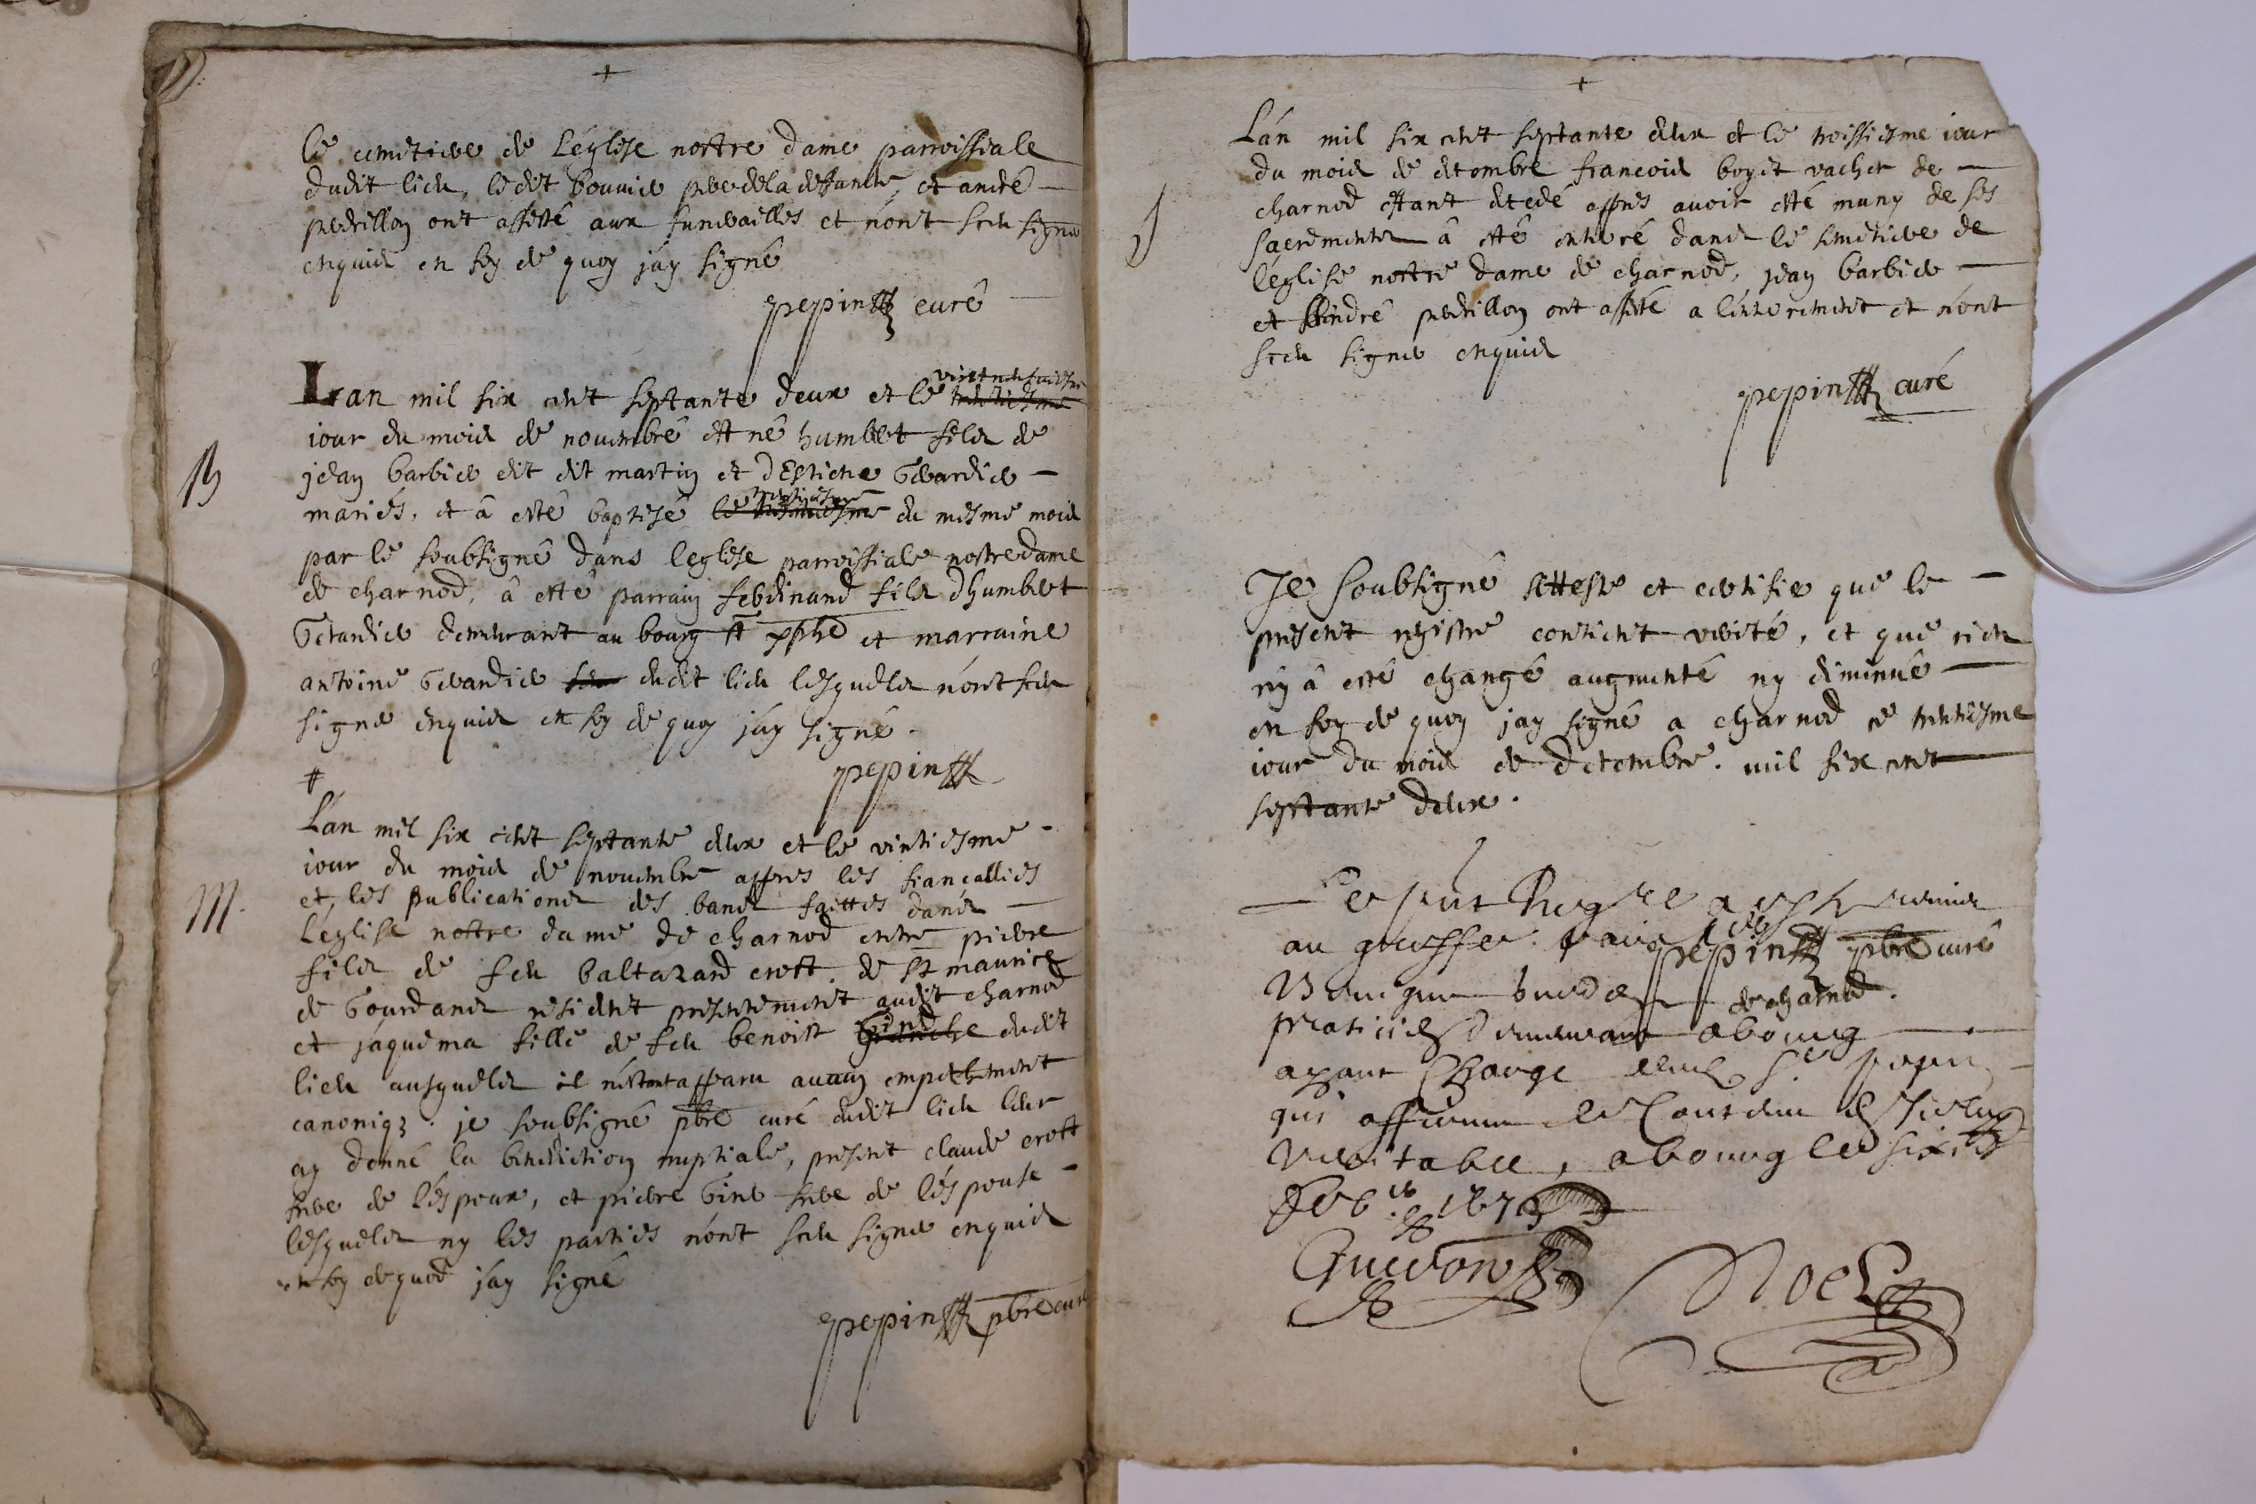 +
le cimetiere de léglise nostre dame parroissiale
dudit lieu, ledit bouuier pere de la deffuncte, et andré
perdrillon ont assisté aux funerailles et n'ont sceu signer
enquis en foy de quoy jáy signé
pepin curé
Lan mil six cent septante deux et le vingt neufuiesme
iour du mois de nouembre est né humbert fils de
B
jean barbier dit dit martin et Gerardier
mariés, et â esté baptisé trentiesme du mesme mois
par le soubsigné dans leglise parroissiale nostre dame
de charnod, â esté parrain ferdinand fils dhumbert
Gerardier demeurant au bourg st xphe et marraine
antoine Gerardier dudit lieu lesquels n'ont sceu
signer enquis en foy de quoy jáy signé.
pepin
Lán mil six cent septante deux et le vintiesme
iour du mois de nouembre appres les fiancallies
M.
et, les publications des bans faittes dans
léglise nostre dame de charnod entre pierre
fils de feu baltazard crott de st maurice
de Gourdans résident presentement audit charnod
et jáquema fille de feu benoist Gind dudit
lieu ausquels il apparu aucun empechement
canoniq3. je soubsigné pbre curé dudit lieu leur
ay donné la benediction nuptiale, présent claude crott
frere de léspoux, et pierre Gind frere de léspouse
lesquels ny les parties n'ont sceu signer enquis
en foy de quoy jáy signé
pepin pbre curé
+
Lán mil six cent septante deux et le troissiesme iour
du mois de decembre francois boyit vacher de
charnod estant decedé appres auoir esté muny de ses
sacrements â esté enterré dans le simetiere de
léglise nostre dame de charnod, jean barbier
et André perdrillon ont assisté a lénterement et n'ont
sceu signer enquis
pepin curé
Je soubsigné Atteste et certifie que le
présent registre contient verité, et que rien
n'y â esté changé augmenté ny diminué
en foy de quoy jay signé a charnod ce trentiesme
iour du mois de decembre. mil six cent
septante deux.
pepin pbre curé
de charnod.
Le
au greffe.
praticien demeurant a bourg
ayant charge Sr pepin
qui affirme le Contenu
veritable, a bourg le six
1673
Guedon
Noel